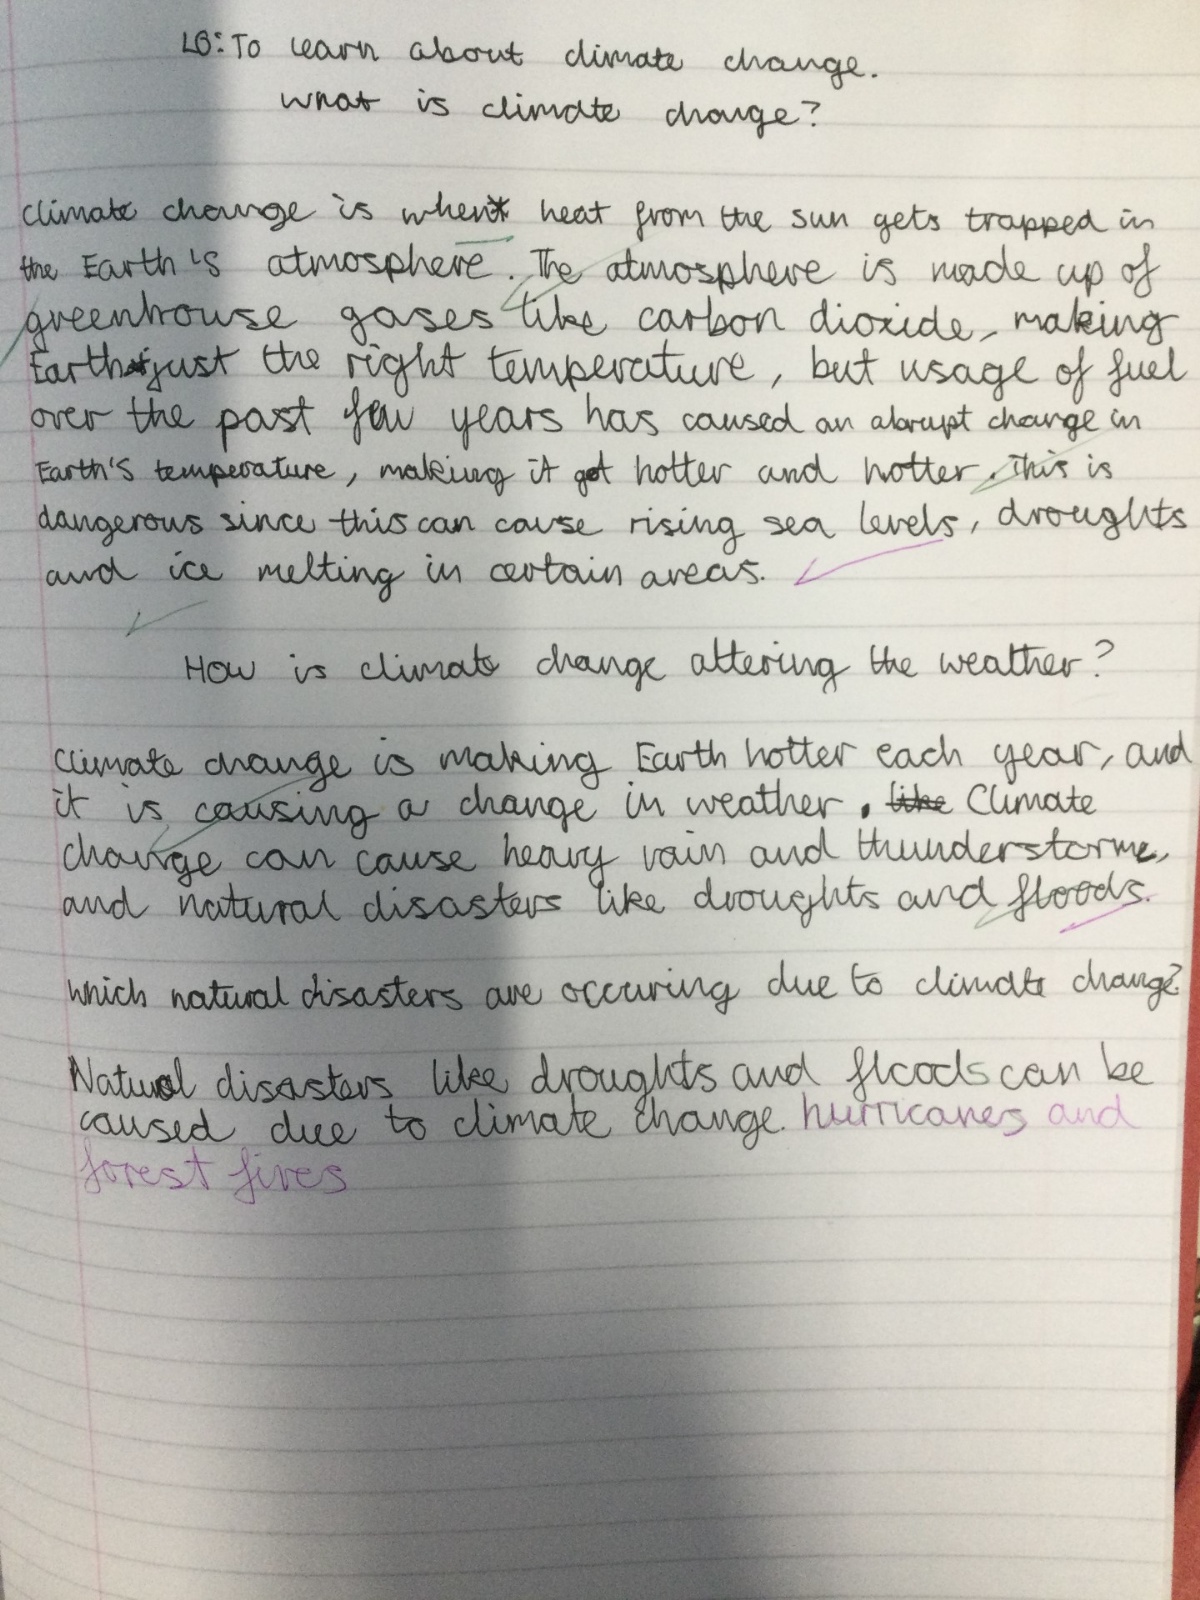 LO: To learn about climate change.
What is climate change?
Climate change is when heat from the sun gets trapped in
the Earth's atmosphere. The atmosphere is made up of
greenhouse gases like carbon dioxide, making
Earth just the right temperature, but usage of fuel
over the past few years has caused an abrupt change in
Earth's temperature, making it get hotter and hotter. This is
dangerous since this can cause rising sea levels, droughts
and ice melting in certain areas.
How is climate change altering the weather?
Climate change is making Earth hotter each year, and
it is causing a change in weather. like Climate
change can cause heavy rain and thunderstorms,
and natural disasters like droughts and floods.
Which natural disasters are occuring due to climate change?
Natural disasters like droughts and floods can be
caused due to climate change. hurricanes and
forest fires